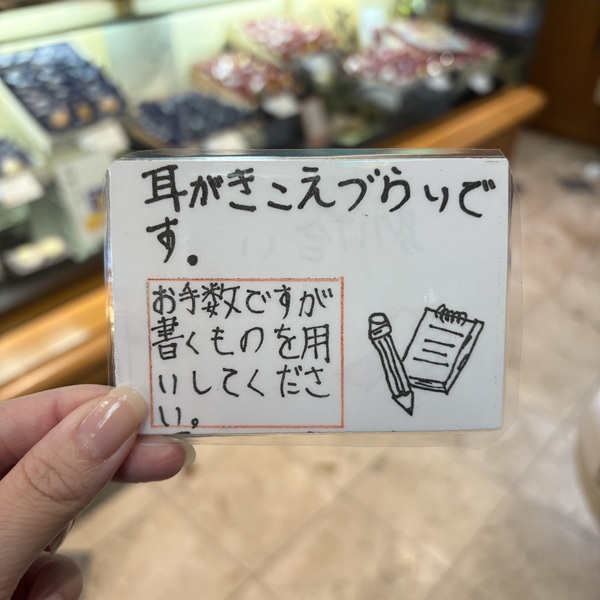 耳がきこえづらいで
す。
お手数ですが
書くものを用
いしてくださ
い。